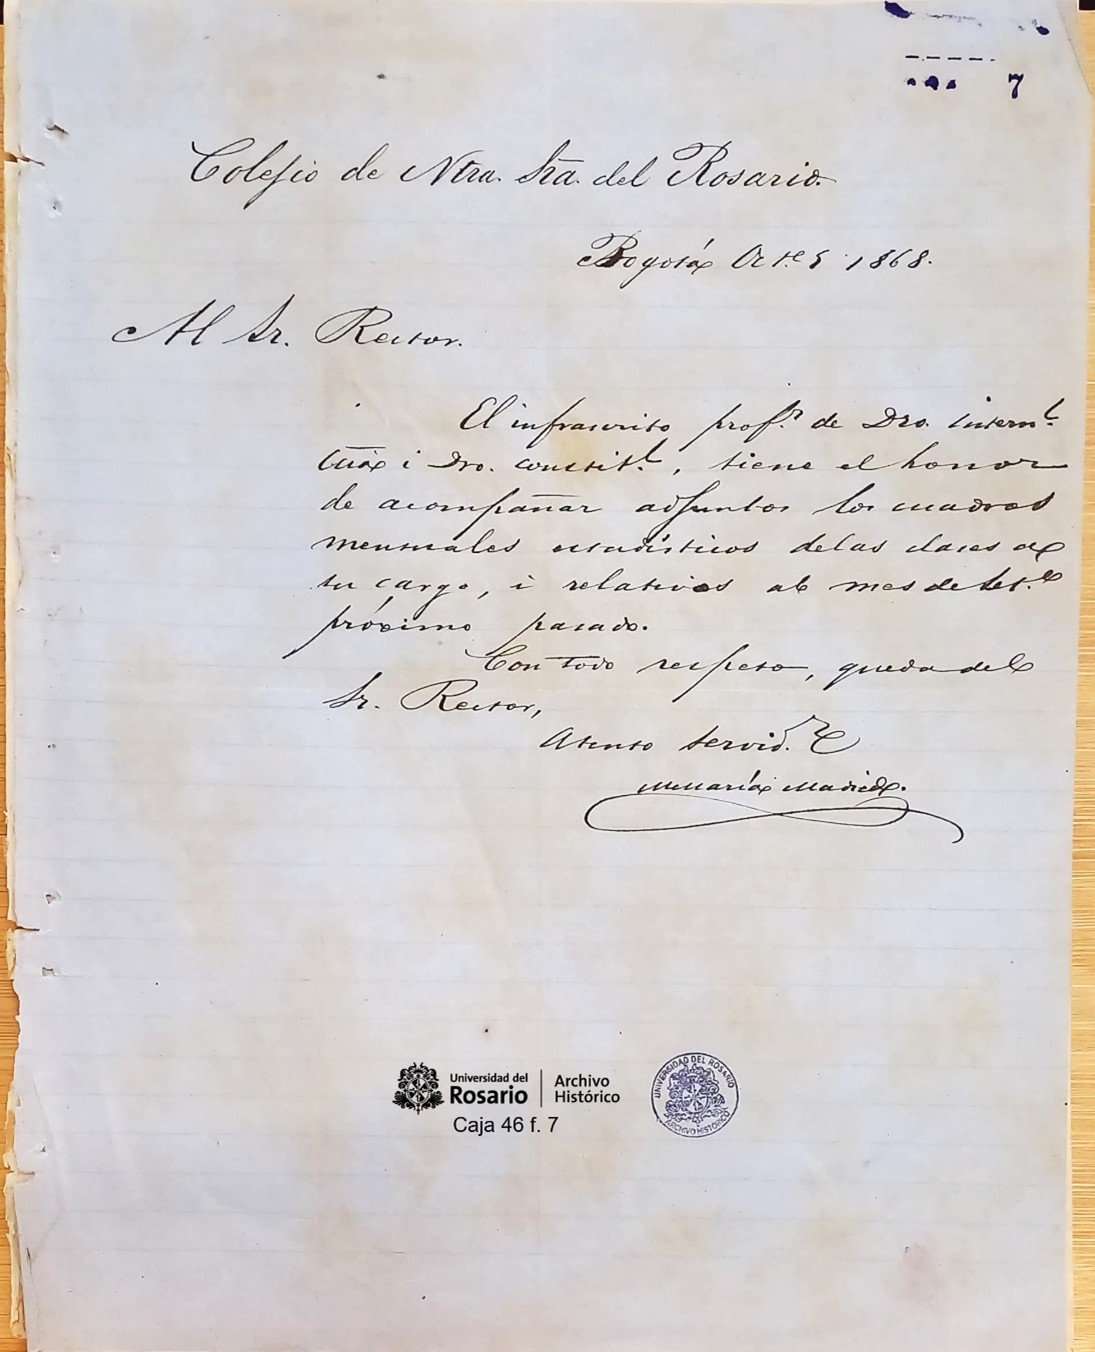 7
Colejio de Ntra. Sra. del Rosario.
Bogotá Oct.e 5 1868.
Al Sr. Rector.
El infrascrito prof.r de Dro. intern.l
i Dro. constit.l, tiene el honor
de acompañar adjuntos los cuadros
mensuales estadísticos de las clases a
su cargo, i relativos al mes de Set.e
próximo pasado.
Con todo respeto, queda del
Sr. Rector,
Atento servid.r
M. María Madiedo.
Universidad del
Rosario
Archivo
Histórico
Caja 46 f. 7
UNIVERSIDAD DEL ROSARIO
ARCHIVO HISTÓRICO